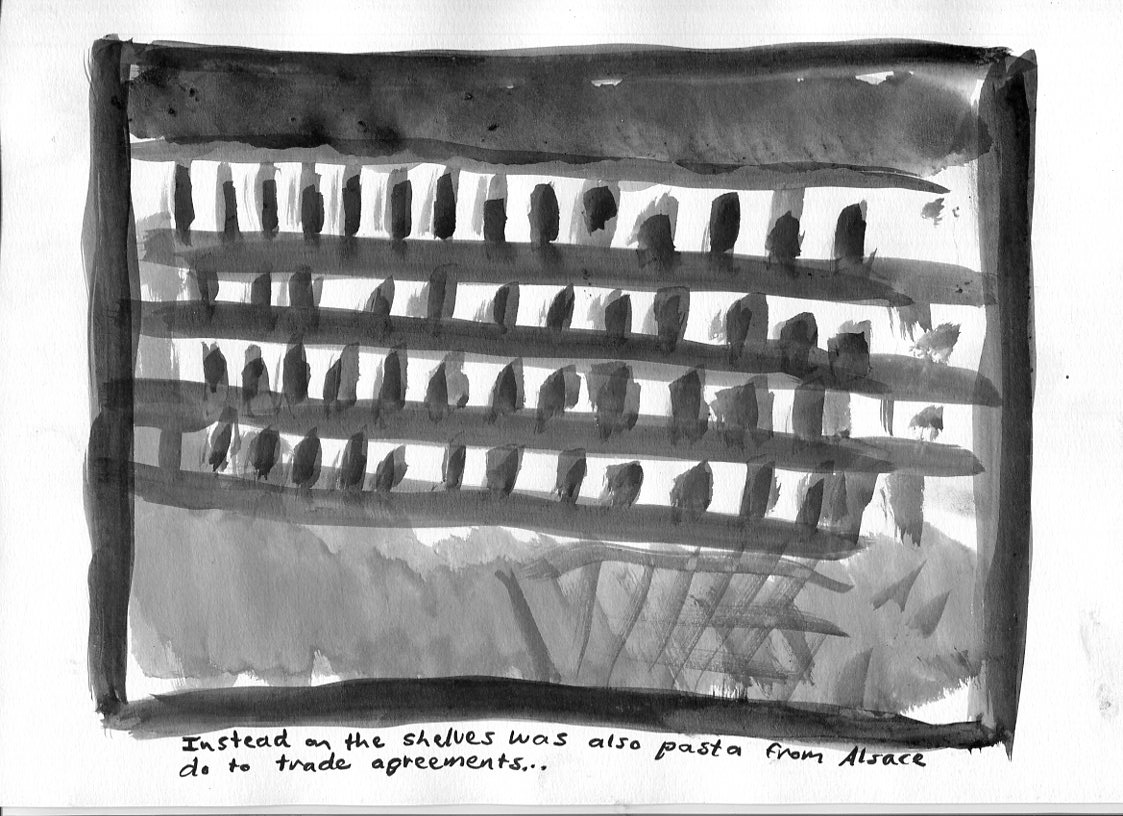 Instead on the shelves was also pasta from Alsace
do to trade agreements...